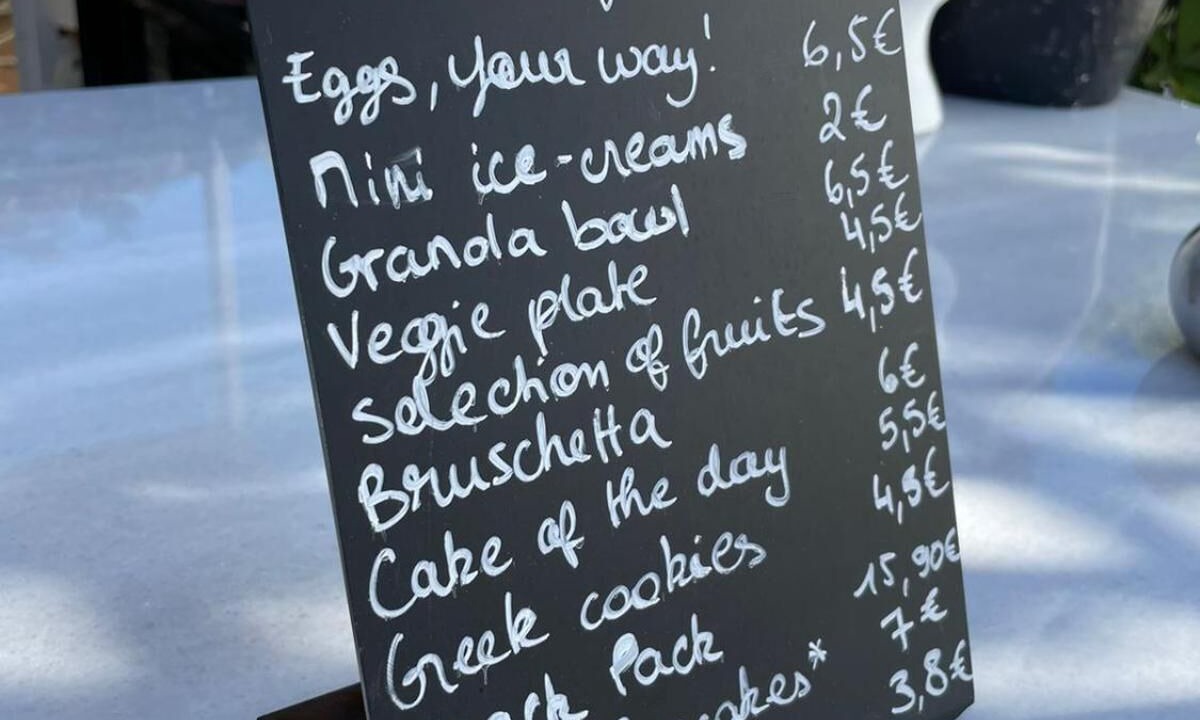 Eggs, your way! 6,5€
Mini ice-creams 2€
Granola bowl 6,5€
Veggie plate 4,5€
Selection of fruits 4,5€
Bruschetta 6€
Cake of the day 5,5€
Greek cookies 4,5€
Pack 15,90€
7€
3,8€